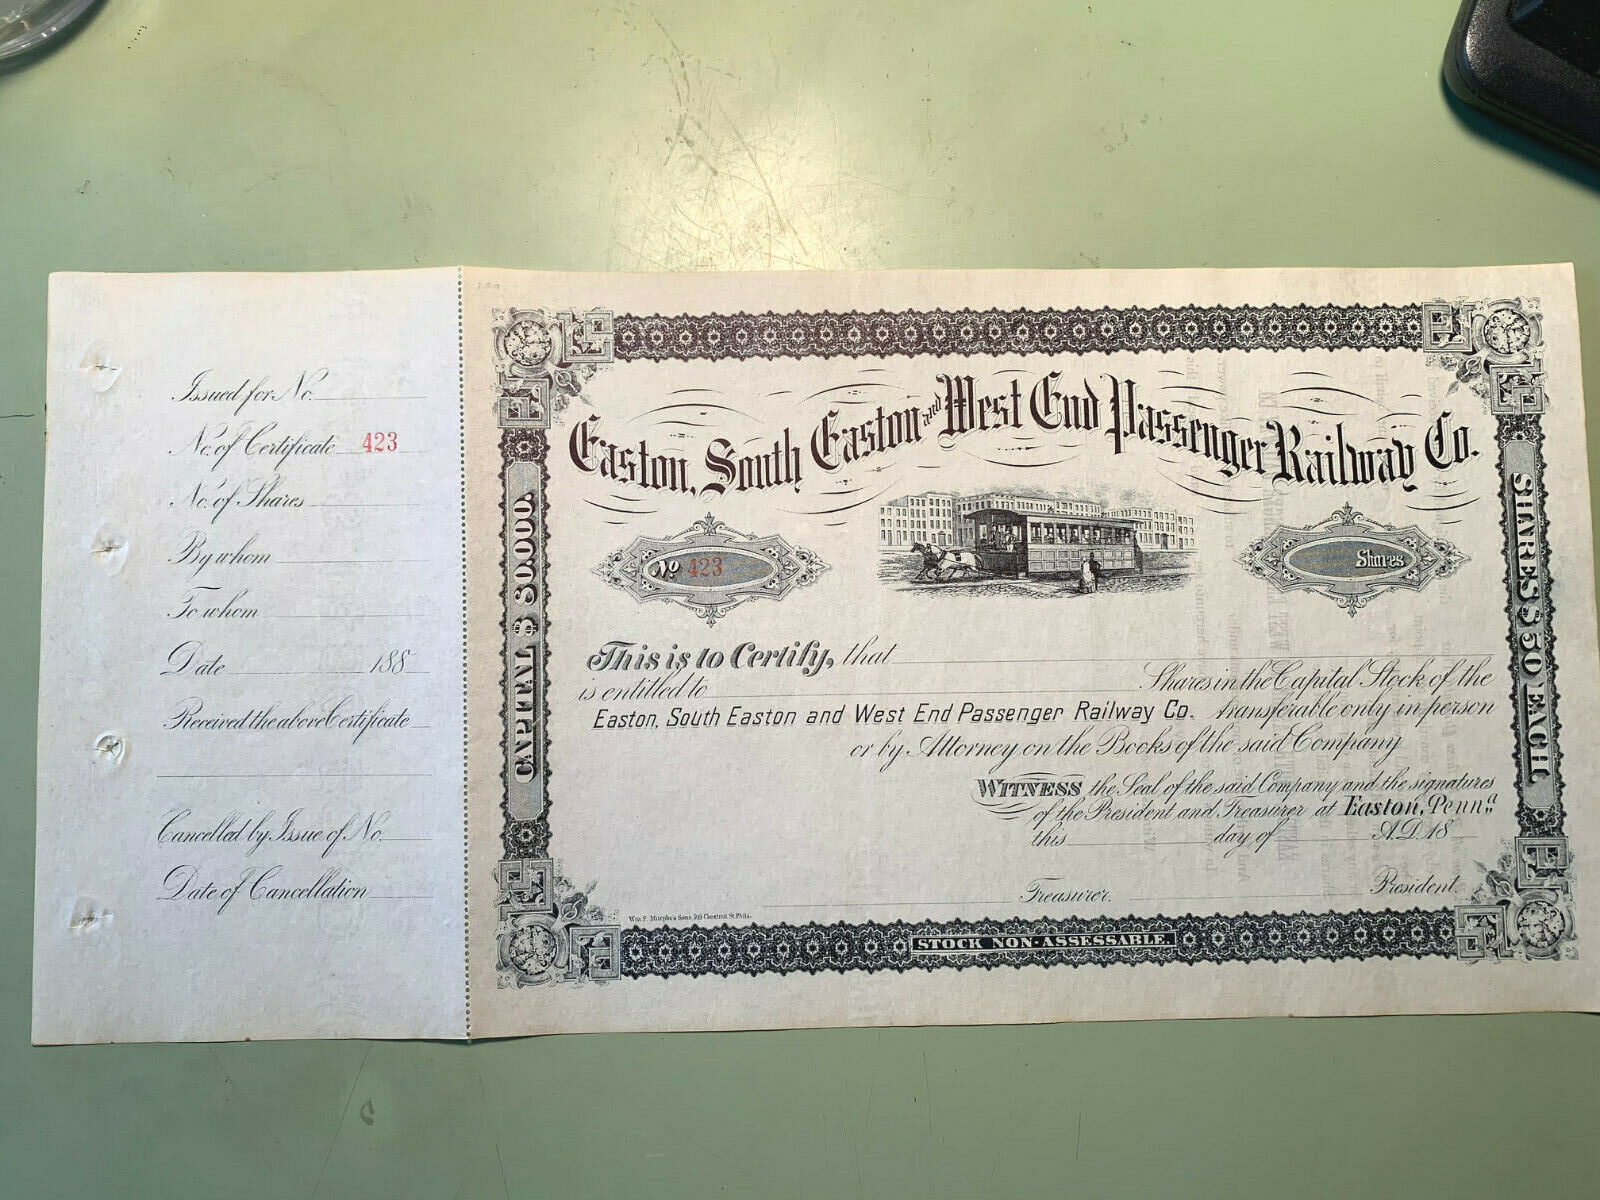 Issued for No.
No. of Certificate 423
No. of Shares
By whom
To whom
Date 188
Received the above Certificate
Cancelled by Issue of No.
Date of Cancellation
Easton, South Easton and West End Passenger Railway Co.
CAPITAL $ 80.000.
SHARES $ 50 EACH.
No 423
Shares
This is to Certify, that
is entitled to Shares in the Capital Stock of the
Easton, South Easton and West End Passenger Railway Co. transferable only in person
or by Attorney on the Books of the said Company
WITNESS the Seal of the said Company and the signatures
of the President and Treasurer at Easton, Penna.
this day of A.D. 18
Treasurer. President.
Wm F. Murphy's Sons, 509 Chestnut St. Phila.
STOCK NON-ASSESSABLE.